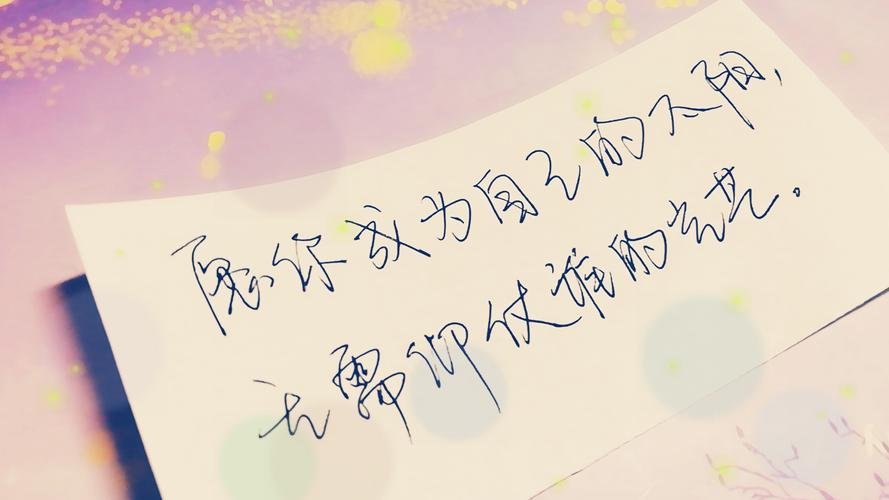 愿你成为自己的太阳,
无需仰仗谁的光芒。